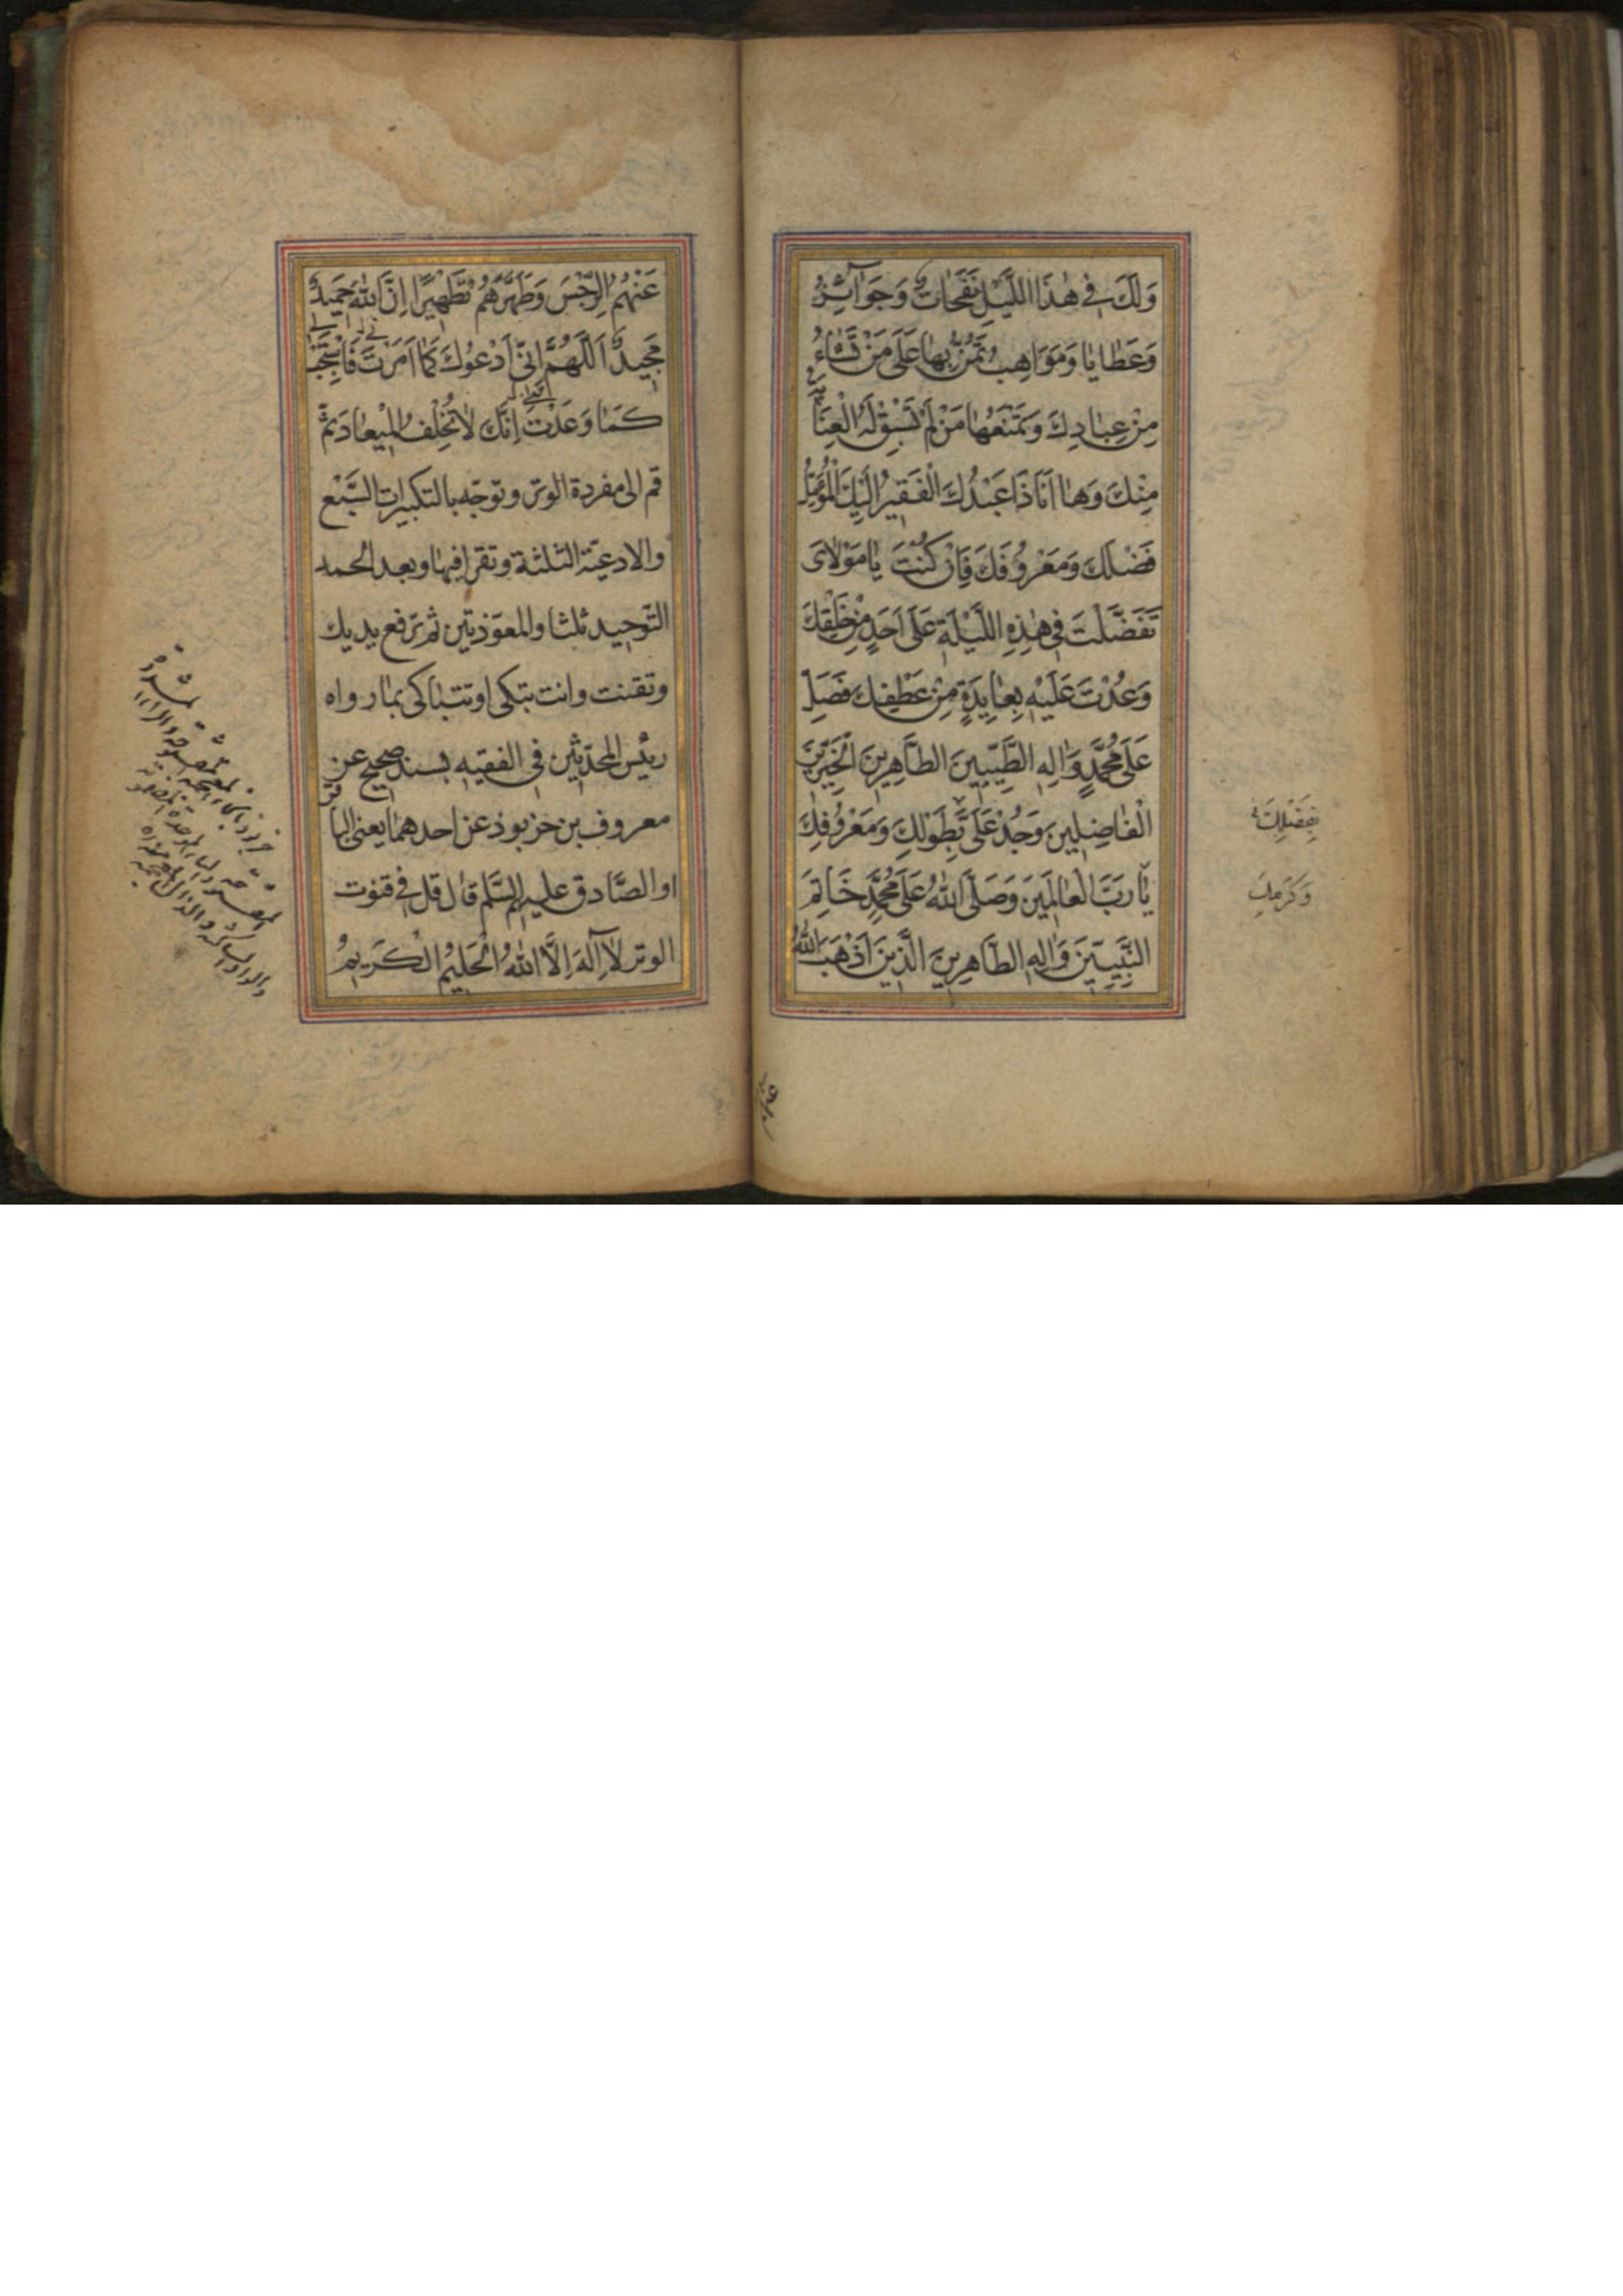 وَلَكَ فِي هٰذَا اللَّيْلِ نَفَحَاتٌ وَجَوَائِزُ
وَعَطَايَا وَمَوَاهِبُ تَمُنُّ بِهَا عَلَى مَنْ تَشَاءُ
مِنْ عِبَادِكَ وَتَمْنَعُهَا مَنْ لَمْ تَسْبِقْ لَهُ الْعِنَايَةُ
مِنْكَ وَهَا اَنَا ذَا عَبْدُكَ الْفَقِيرُ اِلَيْكَ الْمُؤَمِّلُ
فَضْلَكَ وَمَعْرُوفَكَ فَاِنْ كُنْتَ يَا مَوْلَايَ
تَفَضَّلْتَ فِي هٰذِهِ اللَّيْلَةِ عَلَى اَحَدٍ مِنْ خَلْقِكَ
وَعُدْتَ عَلَيْهِ بِعَايِدَةٍ مِنْ عَطْفِكَ فَصَلِّ
عَلَى مُحَمَّدٍ وَاٰلِهِ الطَّيِّبِينَ الطَّاهِرِينَ الْخَيِّرِينَ
الْفَاضِلِينَ وَجُدْ عَلَيَّ بِطَوْلِكَ وَمَعْرُوفِكَ
بِفَضْلِكَ
يَا رَبَّ الْعَالَمِينَ وَصَلَّى اللّٰهُ عَلَى مُحَمَّدٍ خَاتَمِ
وَكَرَمِكَ
النَّبِيِّينَ وَاٰلِهِ الطَّاهِرِينَ الَّذِينَ اَذْهَبَ اللّٰهُ
عَنْهُمُ الرِّجْسَ وَطَهَّرَهُمْ تَطْهِيرًا اِنَّ اللّٰهَ حَمِيدٌ
مَجِيدٌ اَللّٰهُمَّ اِنِّي اَدْعُوكَ كَمَا اَمَرْتَ فَاسْتَجِبْ لِي
كَمَا وَعَدْتَ اِنَّكَ لَا تُخْلِفُ الْمِيعَادَ ثم
قم الى مفردة الوتر وتوجّه بالتكبيرات السَّبْع
والادعيّة الثلثة وتقرا فيها وبعد الحمد
التّوحيد ثلثا والمعوّذتين ثم ترفع يديك
وتقنت وانت تبكى او تتباكى بما رواه
رئيس المحدّثين فى الفقيه بسند صحيح عن
معروف بن خربوذ عن احدهما يعنى الباقر
او الصَّادق عليهم السَّلم قال قل فى قنوت
الوتر لَا اِلٰهَ اِلَّا اللّٰهُ الْحَلِيمُ الْكَرِيمُ